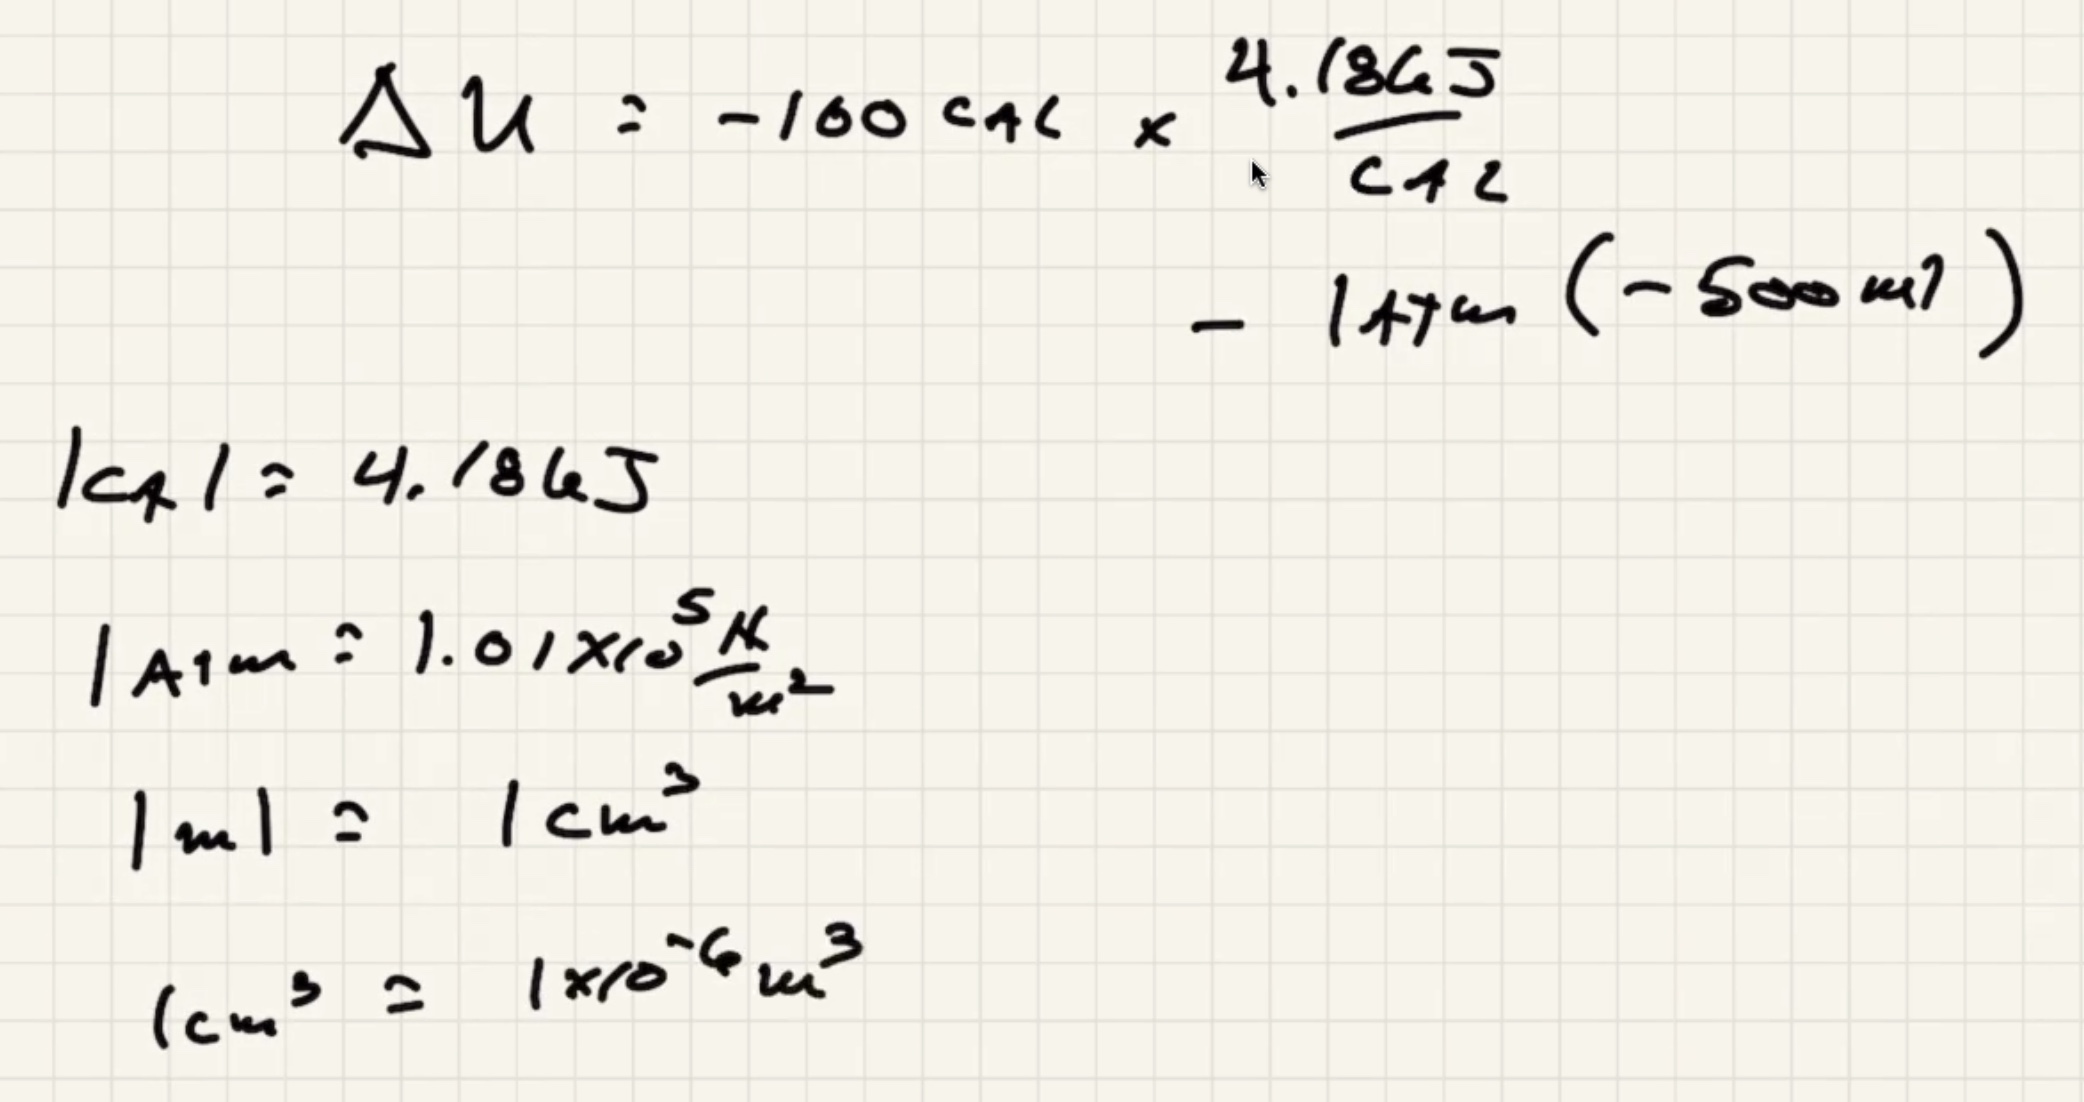 ΔU = -100 CAL × 4.186J/CAL
- 1 ATm (-500 ml)
1 CAl = 4.186J
1 ATm = 1.01×10⁵ N/m²
1 ml = 1 cm³
1 cm³ = 1×10⁻⁶ m³